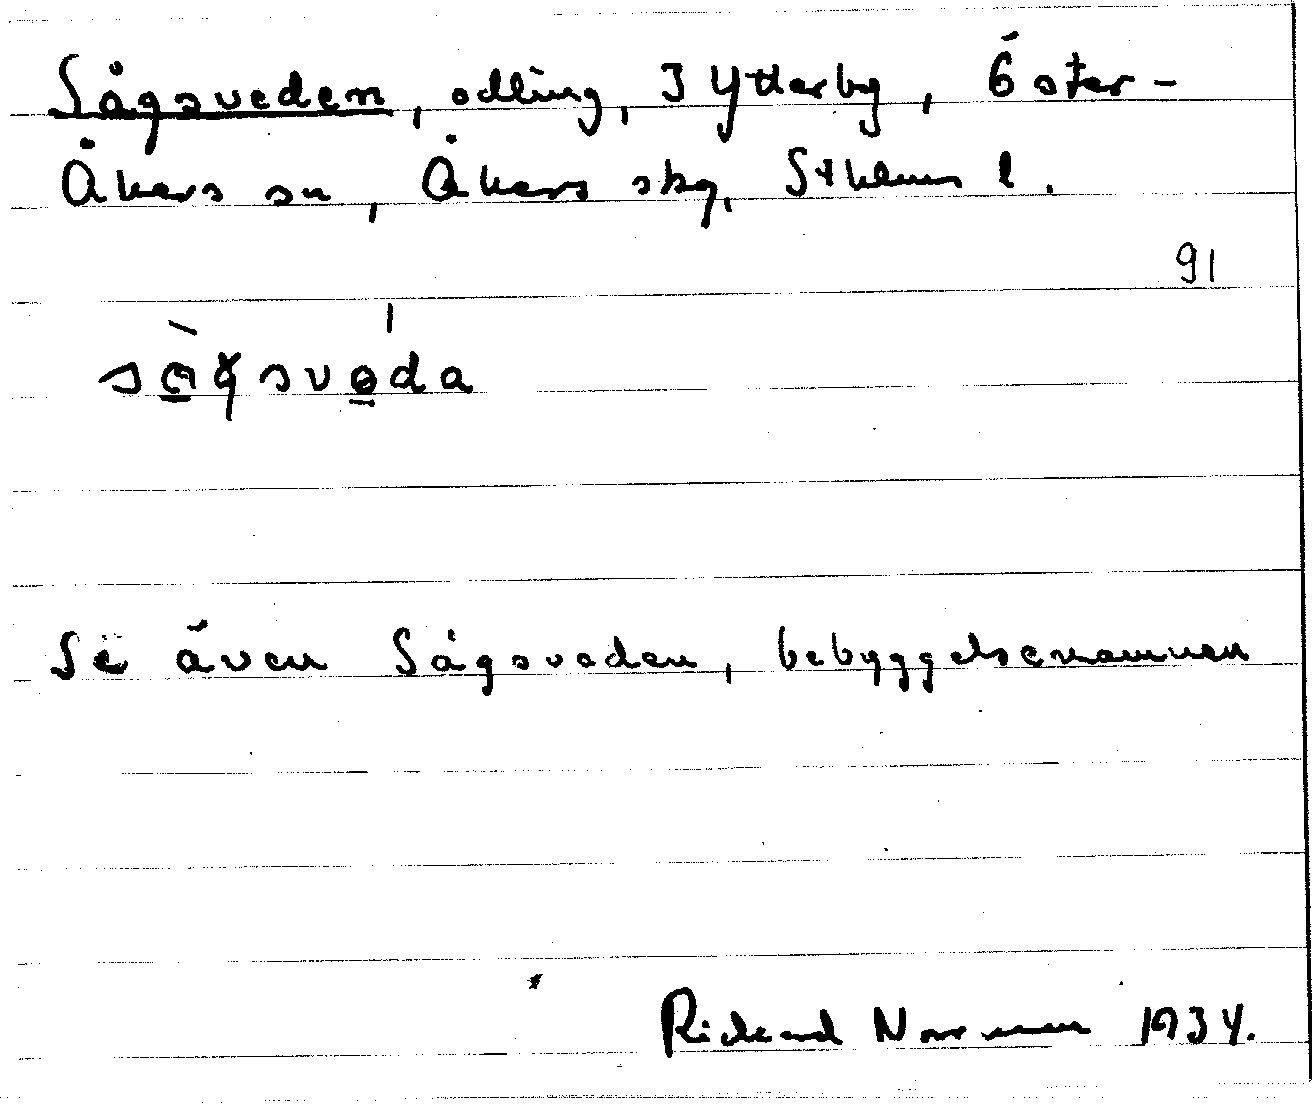 Sågsveden, odling, I Ytterby, Öster-
Åkers sn, Åkers skg, Sthlms l.
91
Se även Sågsveden, bebyggelsenamnen
Rickard Norrman 1934.